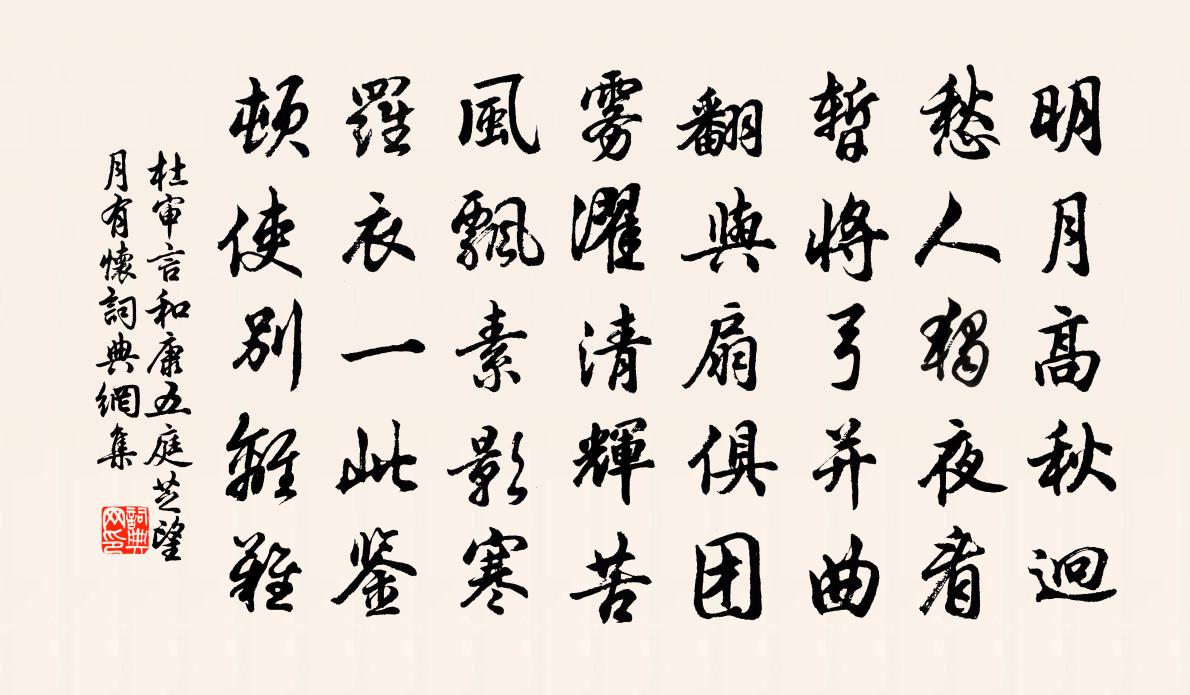 明月高秋迥
愁人獨夜看
暫將弓并曲
翻與扇俱团
雾濯清輝苦
風飄素影寒
羅衣一此鉴
頓使別離難
杜审言和康五庭芝望
月有懷詞典網集
詞典
网印